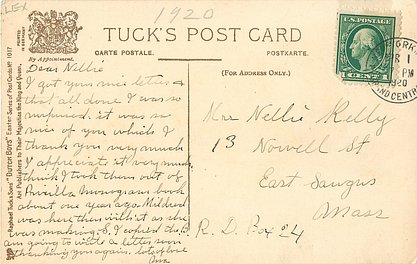 1920
TUCK'S POST CARD
CARTE POSTALE.
POSTKARTE.
PRINTED
By Appointment.
(FOR ADDRESS ONLY.)
Raphael Tuck & Sons' "DUTCH BOYS" Easter Series of Post Cards No. 1017
Art Publishers to Their Majesties the King and Queen.
Dear Nellie
I got your nice letter &
that all done I was so
surprised. it was so
nice of you which I
thank you very much
I appreciate it very much
think I took them out of
Priscilla monogram book
about one year ago. Mildred
was here then with it as she
was making S. I copied the B
am going to write a letter soon
thanking you again. lots of love
U.S. POSTAGE
1 CENT 1
1
PM
1920
GRAND CENTR
Nellie Kelly
13 Nowell St
East Saugus
Mass
R. D. Box 24